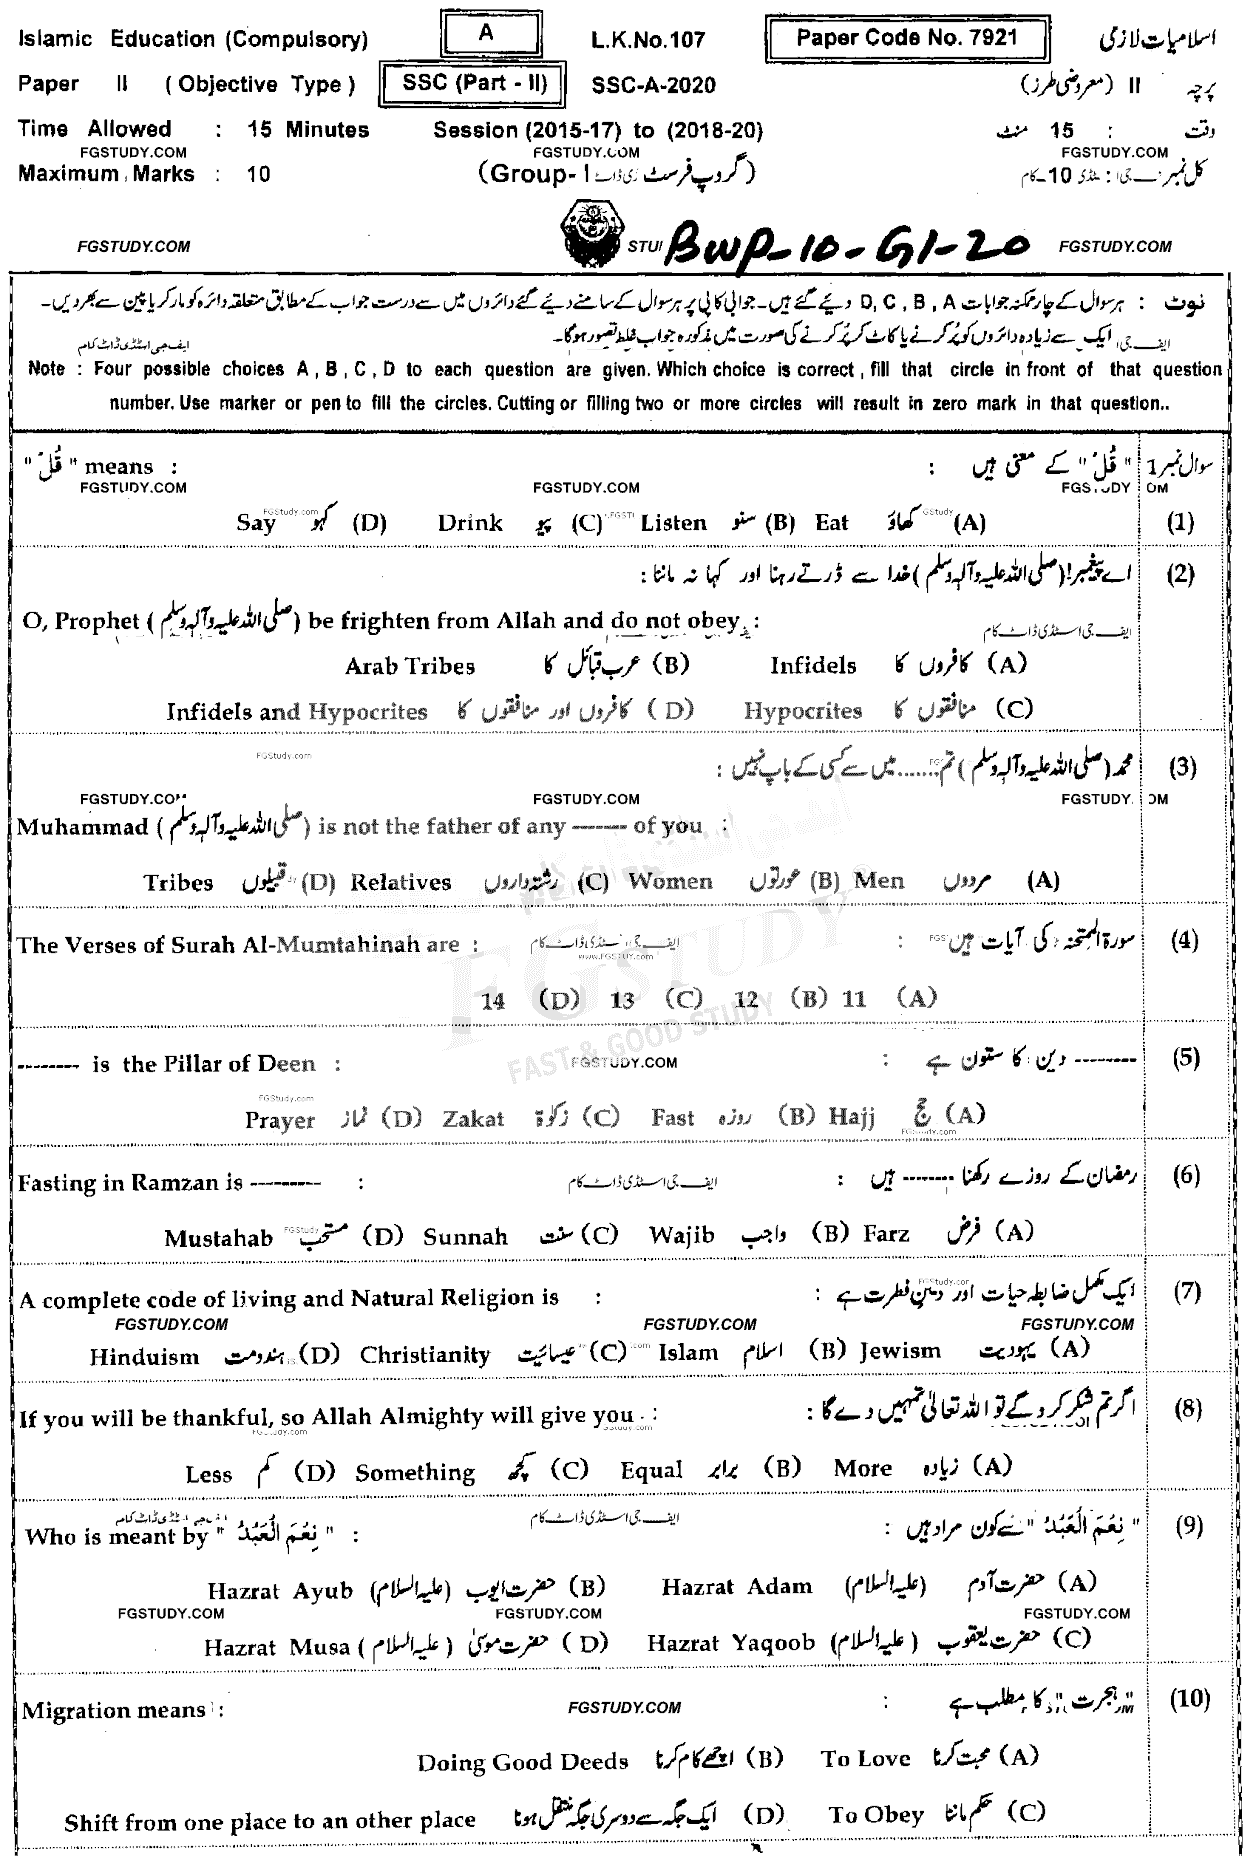 Islamic Education (Compulsory) A L.K.No.107 Paper Code No. 7921 اسلامیات لازمی
Paper II (Objective Type) SSC (Part - II) SSC-A-2020 پرچہ II (معروضی طرز)
Time Allowed : 15 Minutes Session (2015-17) to (2018-20) وقت : 15 منٹ
FGSTUDY.COM FGSTUDY.COM FGSTUDY.COM
Maximum Marks : 10 (Group-I گروپ فرسٹ) کل نمبر : 10
FGSTUDY.COM BWP-10-G1-20 FGSTUDY.COM
نوٹ : ہر سوال کے چار ممکنہ جوابات D, C, B, A دیئے گئے ہیں۔ جوابی کاپی پر ہر سوال کے سامنے دیئے گئے دائروں میں سے درست جواب کے مطابق متعلقہ دائرہ کو مارکر یا پین سے بھر دیں۔
ایک سے زیادہ دائروں کو پُر کرنے یا کاٹ کر پُر کرنے کی صورت میں مذکورہ جواب غلط تصور ہوگا۔
ایف جی اسٹڈی ڈاٹ کام
Note : Four possible choices A , B , C , D to each question are given. Which choice is correct , fill that circle in front of that question
number. Use marker or pen to fill the circles. Cutting or filling two or more circles will result in zero mark in that question..
" قُلْ " means : " قُلْ " کے معنی ہیں : سوال نمبر 1
FGSTUDY.COM FGSTUDY.COM
Say کہو (D) Drink پیو (C) Listen سنو (B) Eat کھاؤ (A) (1)
اے پیغمبر! (صلی اللہ علیہ وآلہ وسلم) خدا سے ڈرتے رہنا اور کہا نہ ماننا : (2)
O, Prophet (صلی اللہ علیہ وآلہ وسلم) be frighten from Allah and do not obey : ایف جی اسٹڈی ڈاٹ کام
Arab Tribes عرب قبائل کا (B) Infidels کافروں کا (A)
Infidels and Hypocrites کافروں اور منافقوں کا (D) Hypocrites منافقوں کا (C)
FGStudy.com محمد (صلی اللہ علیہ وآلہ وسلم) تم ....... میں سے کسی کے باپ نہیں : (3)
FGSTUDY.COM FGSTUDY.COM
Muhammad (صلی اللہ علیہ وآلہ وسلم) is not the father of any ------- of you :
Tribes قبیلوں (D) Relatives رشتہ داروں (C) Women عورتوں (B) Men مردوں (A)
The Verses of Surah Al-Mumtahinah are : ایف جی اسٹڈی ڈاٹ کام سورۃ الممتحنہ کی آیات ہیں : (4)
www.FGSTUDY.com
14 (D) 13 (C) 12 (B) 11 (A)
FGSTUDY
FAST & GOOD STUDY
-------- is the Pillar of Deen : FGSTUDY.COM -------- دین کا ستون ہے : (5)
FGStudy.com
Prayer نماز (D) Zakat زکوٰۃ (C) Fast روزہ (B) Hajj حج (A)
FGStudy.com
Fasting in Ramzan is --------- : ایف جی اسٹڈی ڈاٹ کام رمضان کے روزے رکھنا -------- ہیں : (6)
Mustahab مستحب (D) Sunnah سنت (C) Wajib واجب (B) Farz فرض (A)
A complete code of living and Natural Religion is : ایک مکمل ضابطہ حیات اور دین فطرت ہے : (7)
FGSTUDY.COM FGSTUDY.COM FGSTUDY.COM
Hinduism ہندومت (D) Christianity عیسائیت (C) Islam اسلام (B) Jewism یہودیت (A)
If you will be thankful, so Allah Almighty will give you : اگر تم شکر کرو گے تو اللہ تعالیٰ تمہیں دے گا : (8)
Less کم (D) Something کچھ (C) Equal برابر (B) More زیادہ (A)
Who is meant by " نِعْمَ الْعَبْدُ " : ایف جی اسٹڈی ڈاٹ کام " نِعْمَ الْعَبْدُ " سے کون مراد ہیں : (9)
Hazrat Ayub حضرت ایوب (علیہ السلام) (B) Hazrat Adam حضرت آدم (علیہ السلام) (A)
FGSTUDY.COM FGSTUDY.COM FGSTUDY.COM
Hazrat Musa حضرت موسیٰ (علیہ السلام) (D) Hazrat Yaqoob حضرت یعقوب (علیہ السلام) (C)
Migration means : FGSTUDY.COM "ہجرت" کا مطلب ہے : (10)
Doing Good Deeds اچھے کام کرنا (B) To Love محبت کرنا (A)
Shift from one place to an other place ایک جگہ سے دوسری جگہ منتقل ہونا (D) To Obey حکم ماننا (C)